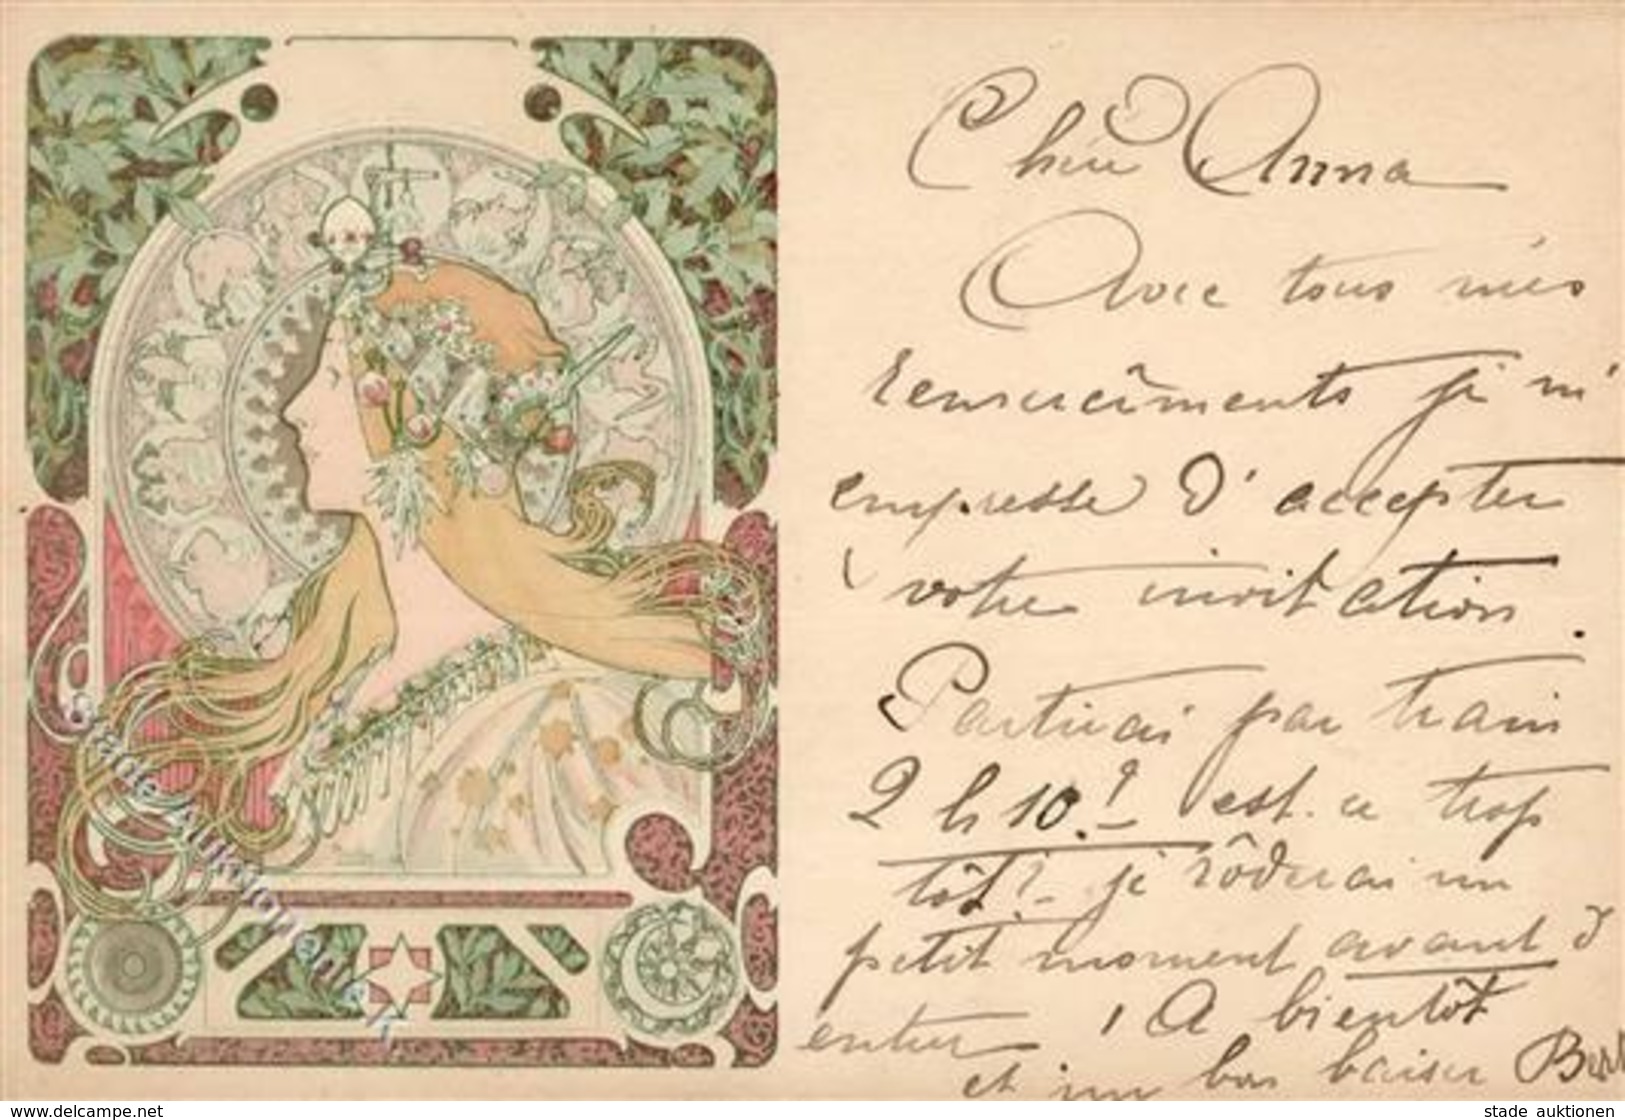 Chère Anna
Avec tous mes
remerciements je m'
empresse d'accepter
votre invitation.
Partirai par train
2 h 10!- est-ce trop
tôt?- je rôderai un
petit moment avant d'
entrer, A bientôt
et un bon baiser Bert
stade Auktionen.de K
www.delcampe.net
stade auktionen